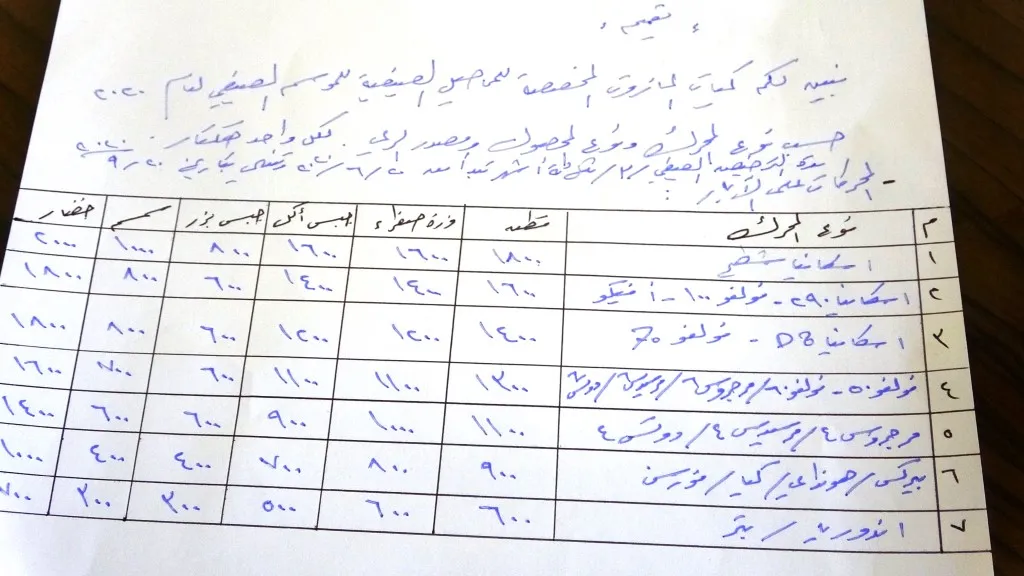 « تعميم »
نبين لكم كميات المازوت المخصصة للمحاصيل الصيفية للموسم الصيفي لعام ٢٠٢٠
حسب نوع المحرك ونوع المحصول ومصدر الري . لكل واحد هكتار .
المحركات على الآبار :
م نوع المحرك قطن ذرة صفراء جبس أكل جبس بزر سمسم خضار
١ اسكانيا شطي ١٨٠٠ ١٦٠٠ ١٦٠٠ ٨٠٠ ١٠٠٠ ٢٠٠٠
٢ اسكانيا ٢٩٠ - فولفو ١٠٠ - أ فيكو ١٦٠٠ ١٤٠٠ ١٤٠٠ ٦٠٠ ٨٠٠ ١٨٠٠
٣ اسكانيا D8 - فولفو 70 ١٤٠٠ ١٢٠٠ ١٢٠٠ ٦٠٠ ٨٠٠ ١٨٠٠
٤ فولفو ٥٠ - فولفو ٦٠ / ١٣٠٠ ١١٠٠ ١١٠٠ ٦٠٠ ٧٠٠ ١٦٠٠
٥ مرسيدس ٤ / دوتس ٤ ١١٠٠ ١٠٠٠ ٩٠٠ ٦٠٠ ٦٠٠ ١٤٠٠
٦ بيركنس / هونداي / كيا / فورسن ٩٠٠ ٨٠٠ ٧٠٠ ٤٠٠ ٤٠٠ ١٠٠٠
٧ اندورية / بتر ٦٠٠ ٦٠٠ ٥٠٠ ٣٠٠ ٣٠٠ ٧٠٠